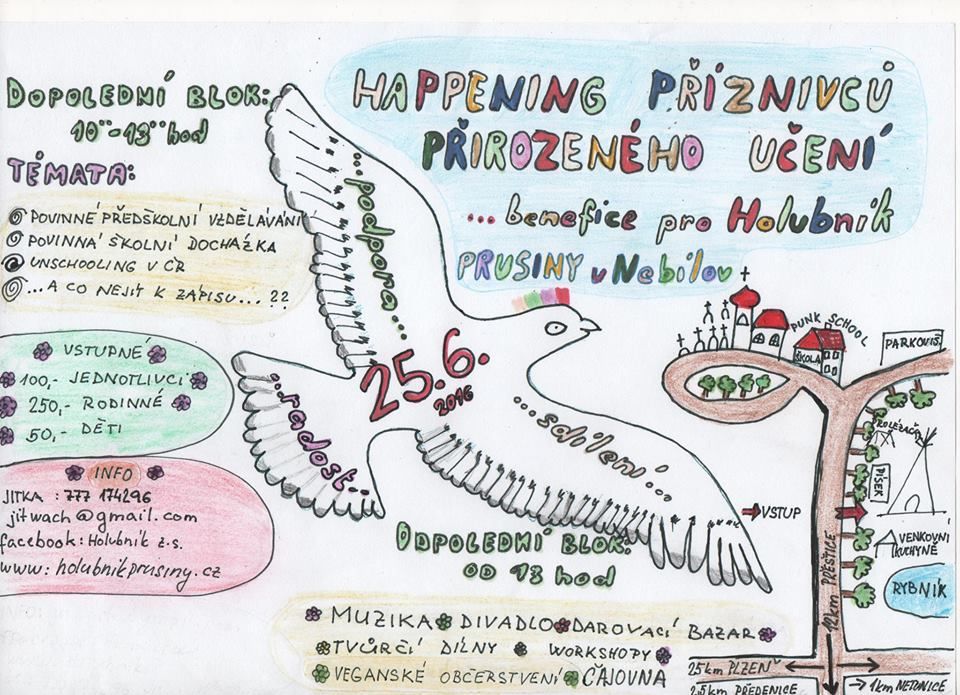 HAPPENING PŘÍZNIVCŮ
PŘIROZENÉHO UČENÍ
... benefice pro Holubník
PRUSINY u Nebílov
DOPOLEDNÍ BLOK:
10°°-13°° hod
TÉMATA:
POVINNÉ PŘEDŠKOLNÍ VZDĚLÁVÁNÍ
POVINNÁ ŠKOLNÍ DOCHÁZKA
UNSCHOOLING V ČR
...A CO NEJÍT K ZÁPISU... ??
VSTUPNÉ
100,- JEDNOTLIVCI
250,- RODINNÉ
50,- DĚTI
INFO
JITKA : 777 174296
jitwach@gmail.com
facebook: Holubník z.s.
www: holubnikprusiny.cz
...podpora...
25.6.
2016
...radost...
...sdílení...
ODPOLEDNÍ BLOK:
OD 13 hod
MUZIKA DIVADLO DAROVACÍ BAZAR
TVŮRČÍ DÍLNY WORKSHOPY
VEGANSKÉ OBČERSTVENÍ ČAJOVNA
PUNK SCHOOL
ŠKOLA
PARKOVIŠ.
PROLÉZAČKY
PÍSEK
VSTUP
VENKOVNÍ
KUCHYNĚ
RYBNÍK
12km PŘEŠTICE
25km PLZEŇ
2.5km PŘEDENICE
1km NETUNICE